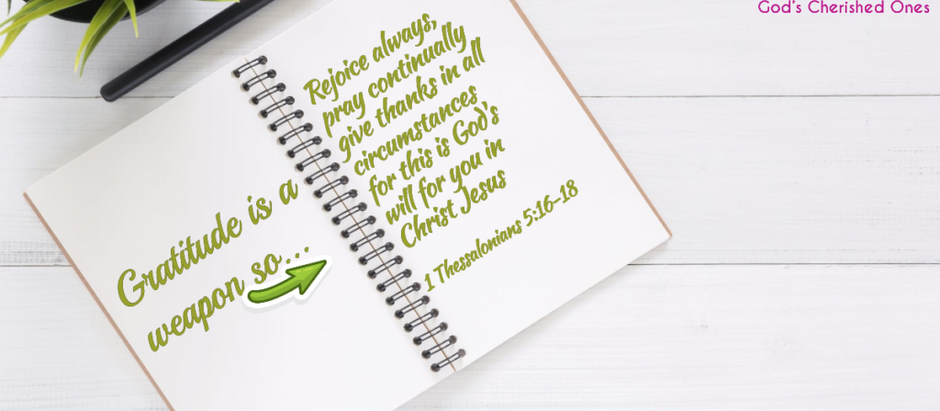 God's Cherished Ones
Gratitude is a
weapon so...
Rejoice always,
pray continually
give thanks in all
circumstances
for this is God's
will for you in
Christ Jesus
1 Thessalonians 5:16-18